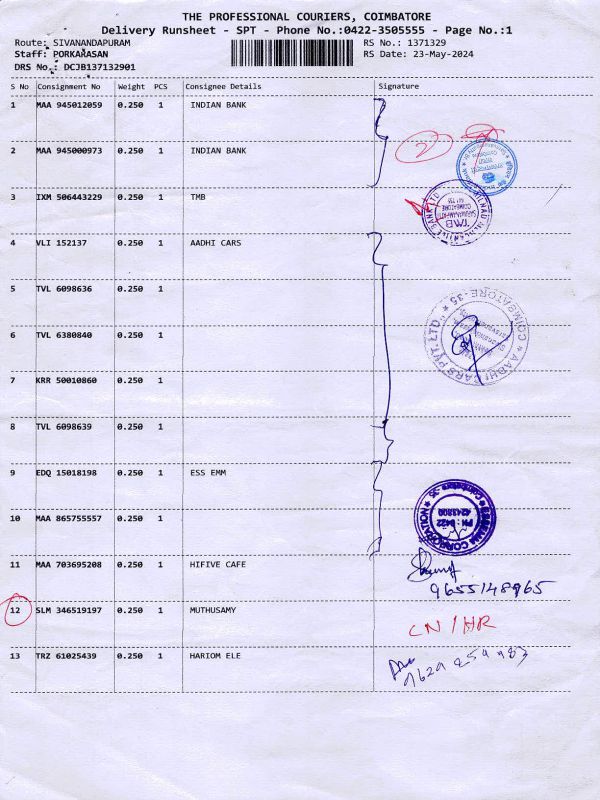 THE PROFESSIONAL COURIERS, COIMBATORE
Delivery Runsheet - SPT - Phone No.:0422-3505555 - Page No.:1
Route: SIVANANDAPURAM RS No.: 1371329
Staff: PORKARASAN RS Date: 23-May-2024
DRS No.: DCJB137132901
S No Consignment No Weight PCS Consignee Details Signature
1 MAA 945012059 0.250 1 INDIAN BANK
2 MAA 945000973 0.250 1 INDIAN BANK
2
3 IXM 506443229 0.250 1 TMB
TMB
4 VLI 152137 0.250 1 AADHI CARS
5 TVL 6098636 0.250 1
6 TVL 6380840 0.250 1
COIMBATORE-35 * AADHI CARS PVT. LTD. *
7 KRR 50010860 0.250 1
8 TVL 6098639 0.250 1
9 EDQ 15018198 0.250 1 ESS EMM
10 MAA 865755557 0.250 1
CORPORATION
Coimbatore-35
PH : 0422
11 MAA 703695208 0.250 1 HIFIVE CAFE
9655148965
12 SLM 346519197 0.250 1 MUTHUSAMY
CN / HR
13 TRZ 61025439 0.250 1 HARIOM ELE